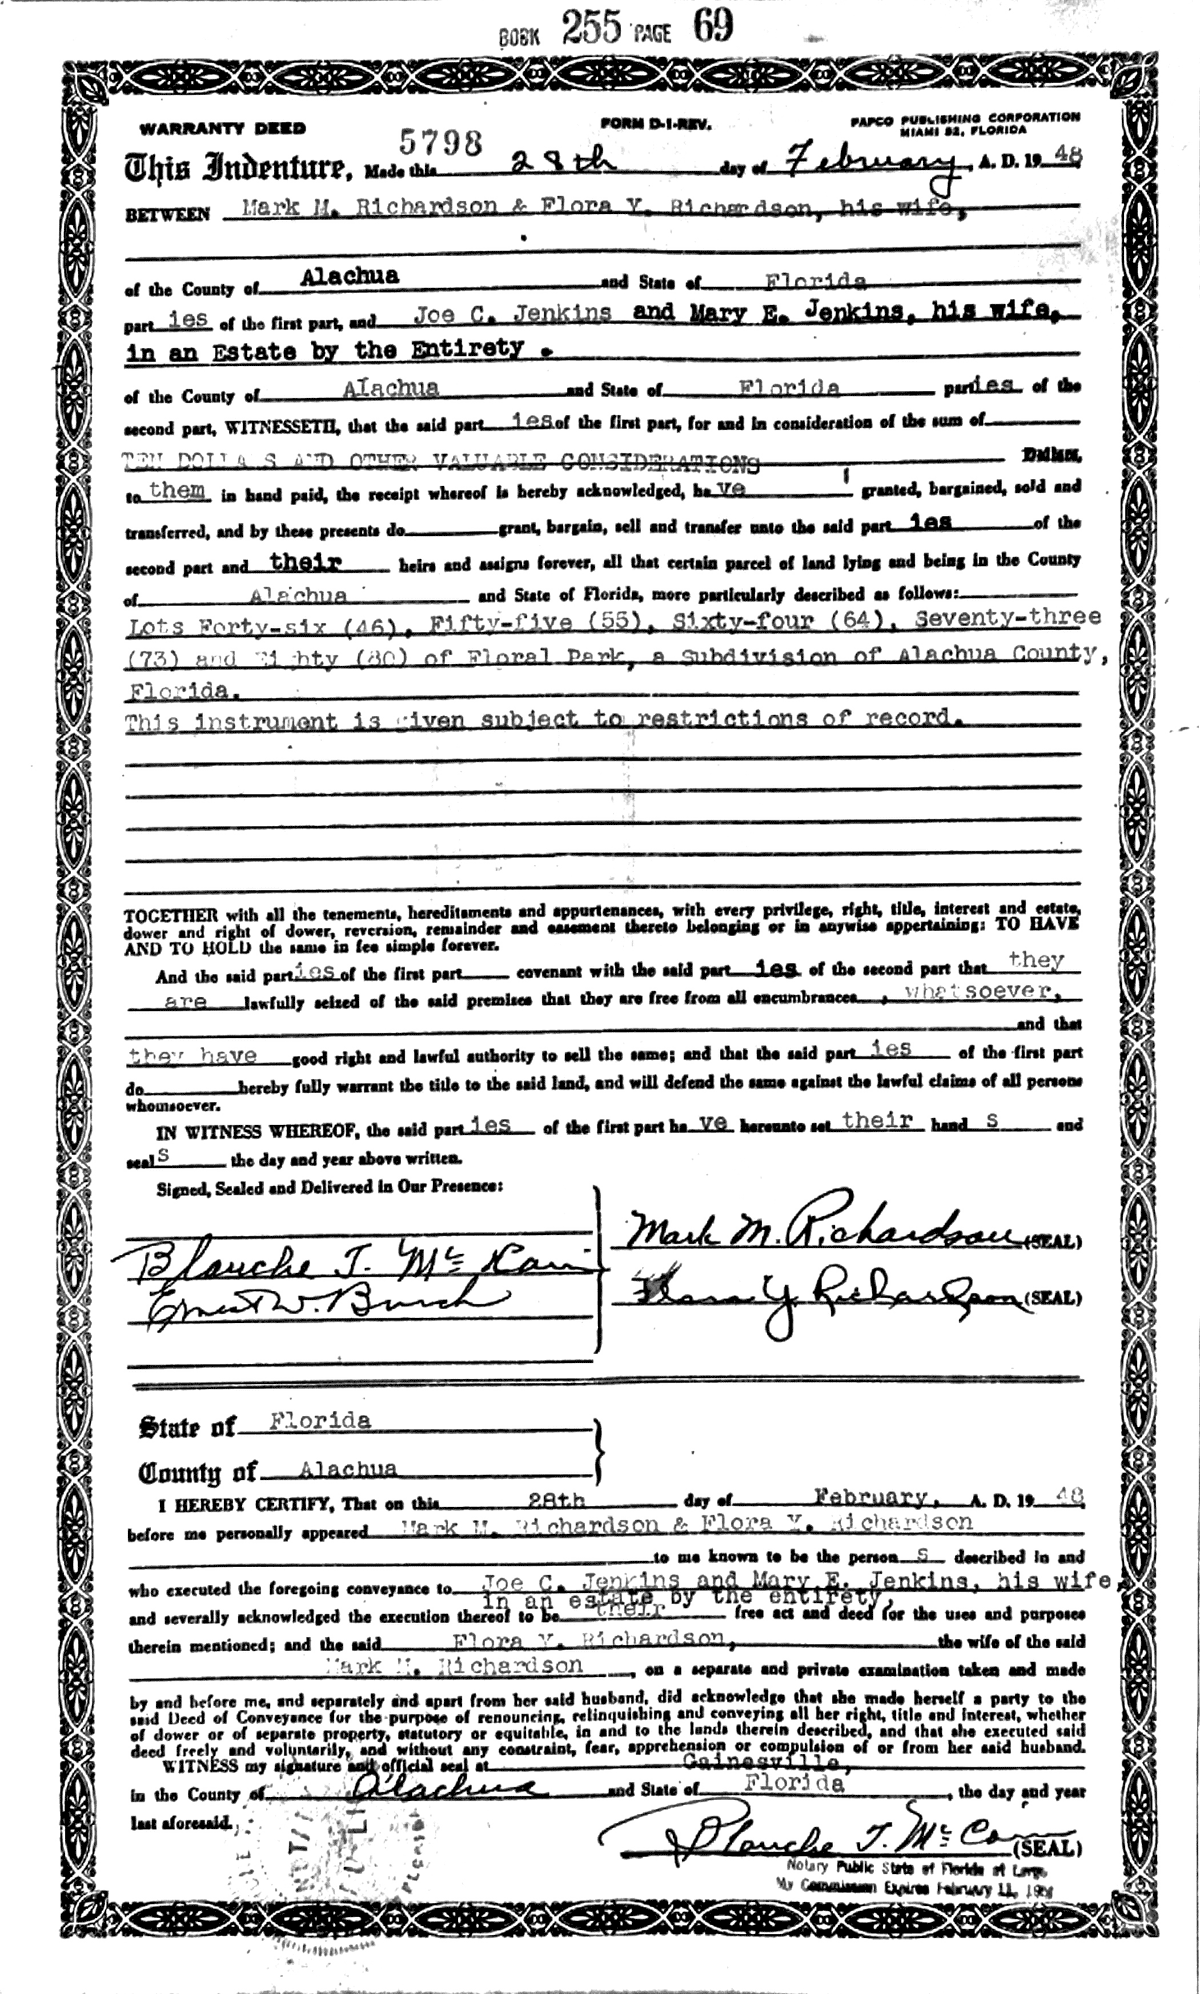 BOOK 255 PAGE 69
WARRANTY DEED 5798 FORM D-1-REV. PAPCO PUBLISHING CORPORATION
MIAMI 32, FLORIDA
This Indenture, Made this 28th day of February, A. D. 19 48
BETWEEN Mark M. Richardson & Flora Y. Richardson, his wife,
of the County of Alachua and State of Florida
part ies of the first part, and Joe C. Jenkins and Mary E. Jenkins, his wife,
in an Estate by the Entirety .
of the County of Alachua and State of Florida parties of the
second part, WITNESSETH, that the said part ies of the first part, for and in consideration of the sum of
TEN DOLLA S AND OTHER VALUABLE CONSIDERATIONS Dollars,
to them in hand paid, the receipt whereof is hereby acknowledged, ha ve granted, bargained, sold and
transferred, and by these presents do grant, bargain, sell and transfer unto the said part ies of the
second part and their heirs and assigns forever, all that certain parcel of land lying and being in the County
of Alachua and State of Florida, more particularly described as follows:
Lots Forty-six (46), Fifty-five (55), Sixty-four (64), Seventy-three
(73) and Eighty (80) of Floral Park, a Subdivision of Alachua County,
Florida.
This instrument is given subject to restrictions of record.
TOGETHER with all the tenements, hereditaments and appurtenances, with every privilege, right, title, interest and estate,
dower and right of dower, reversion, remainder and easement thereto belonging or in anywise appertaining: TO HAVE
AND TO HOLD the same in fee simple forever.
And the said parties of the first part covenant with the said part ies of the second part that they
are lawfully seized of the said premises that they are free from all encumbrances , whatsoever,
and that
they have good right and lawful authority to sell the same; and that the said part ies of the first part
do hereby fully warrant the title to the said land, and will defend the same against the lawful claims of all persons
whomsoever.
IN WITNESS WHEREOF, the said part ies of the first part ha ve hereunto set their hand s and
seal s the day and year above written.
Signed, Sealed and Delivered in Our Presence:
Mark M. Richardson (SEAL)
Blanche T. McCain
Flora Y Richardson (SEAL)
Ernest W. Burch
State of Florida
County of Alachua
I HEREBY CERTIFY, That on this 28th day of February, A. D. 19 48
before me personally appeared Mark M. Richardson & Flora Y. Richardson
to me known to be the person s described in and
who executed the foregoing conveyance to Joe C. Jenkins and Mary E. Jenkins, his wife,
in an estate by the entirety,
and severally acknowledged the execution thereof to be their free act and deed for the uses and purposes
therein mentioned; and the said Flora Y. Richardson, the wife of the said
Mark M. Richardson , on a separate and private examination taken and made
by and before me, and separately and apart from her said husband, did acknowledge that she made herself a party to the
said Deed of Conveyance for the purpose of renouncing, relinquishing and conveying all her right, title and interest, whether
of dower or of separate property, statutory or equitable, in and to the lands therein described, and that she executed said
deed freely and voluntarily, and without any constraint, fear, apprehension or compulsion of or from her said husband.
WITNESS my signature and official seal at Gainesville,
in the County of Alachua and State of Florida , the day and year
last aforesaid.
Blanche T. McCain (SEAL)
Notary Public State of Florida at Large
My Commission Expires February 11,